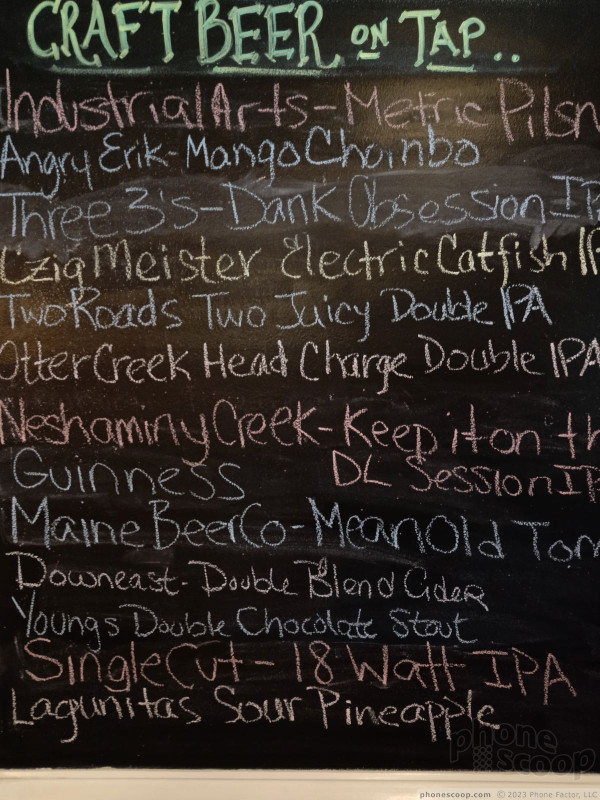 CRAFT BEER ON TAP..
Industrial Arts - Metric Pilsn
Angry Erik - Mango Choinbo
Three 3's - Dank Obsession IP
Czig Meister Electric Catfish IP
Two Roads Two Juicy Double IPA
Otter Creek Head Charge Double IPA
Neshaminy Creek - Keep it on th
DL Session IP
Guinness
Maine Beer Co - Mean Old Tom
Downeast - Double Blend Cider
Youngs Double Chocolate Stout
SingleCut - 18 Watt IPA
Lagunitas Sour Pineapple
phone scoop
phonescoop.com © 2023 Phone Factor, LLC